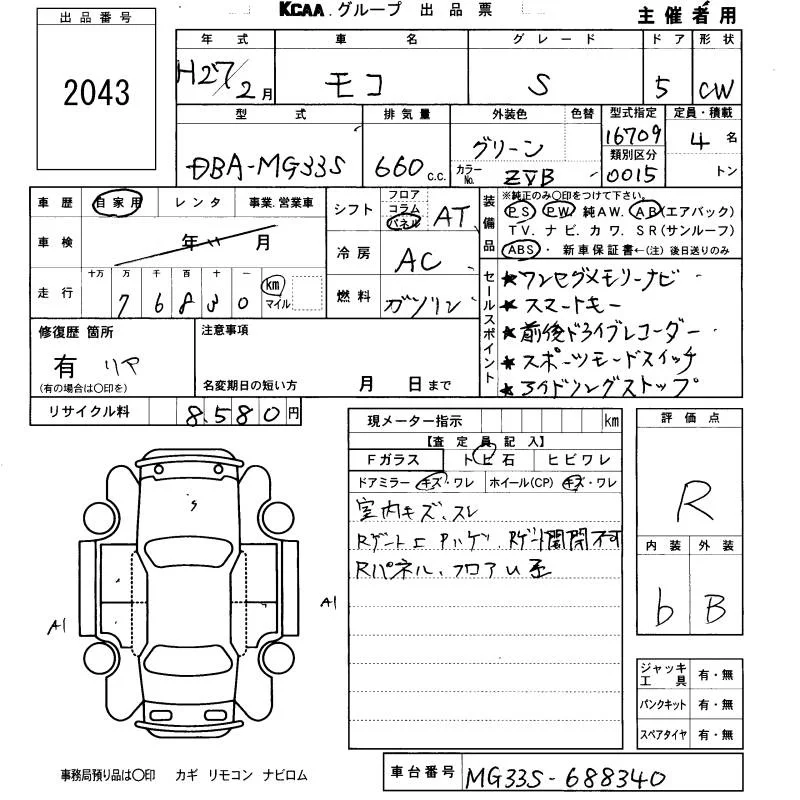 KCAA.グループ 出品票
主催者用
出品番号
2043
年式 車名 グレード ドア 形状
H27/2月 モコ S 5 CW
型式 排気量 外装色 色替 型式指定 定員・積載
DBA-MG33S 660c.c. グリーン 16709 4名
カラーNo. ZVB 類別区分 0015 トン
車歴 自家用 レンタ 事業.営業車
車検 年 月
走行 十万 万 千 百 十 一
76830 km マイル
シフト フロア コラム パネル AT
冷房 AC
燃料 ガソリン
装備品 ※純正のみ〇印をつけて下さい。
PS PW 純AW. AB(エアバック)
TV. ナビ. カワ. SR(サンルーフ)
ABS・ 新車保証書←(注)後日送りのみ
セールスポイント
★ワンセグメモリーナビ
★スマートキー
★前後ドライブレコーダー
★スポーツモードスイッチ
★アイドリングストップ
修復歴 箇所
有 リヤ
(有の場合は〇印を)
注意事項
名変期日の短い方 月 日まで
リサイクル料 8.580円
現メーター指示 km
【査定員記入】
Fガラス トビ石 ヒビワレ
ドアミラー キズ・ワレ ホイール(CP) キズ・ワレ
室内キズ、スレ
Rゲート エ Pハゲ、Rゲート開閉不可
Rパネル、フロアU歪
評価点
R
内装 外装
b B
A1
A1
ジャッキ工具 有・無
パンクキット 有・無
スペアタイヤ 有・無
事務局預り品は〇印 カギ リモコン ナビロム
車台番号 MG33S-688340